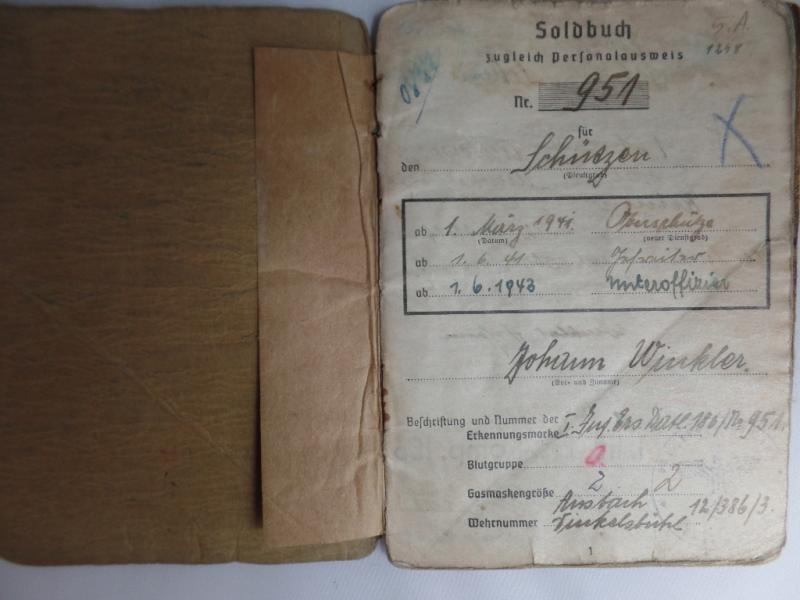 Soldbuch
S.A.
1248
zugleich Personalausweis
Nr. 951
für
den Schützen
(Dienstgrad)
ab 1. März 1941. Oberschütze
(Datum) (neuer Dienstgrad)
ab 1. 6. 41 Gefreiter
ab 1. 6. 1943 Unteroffizier
Johann Winkler.
(Vor- und Zuname)
Beschriftung und Nummer der
Erkennungsmarke I. Ers Batl. 186/Nr 951.
Blutgruppe 0
Gasmaskengröße 2 2
Ansbach 12/386/3.
Wehrnummer Dinkelsbühl
1